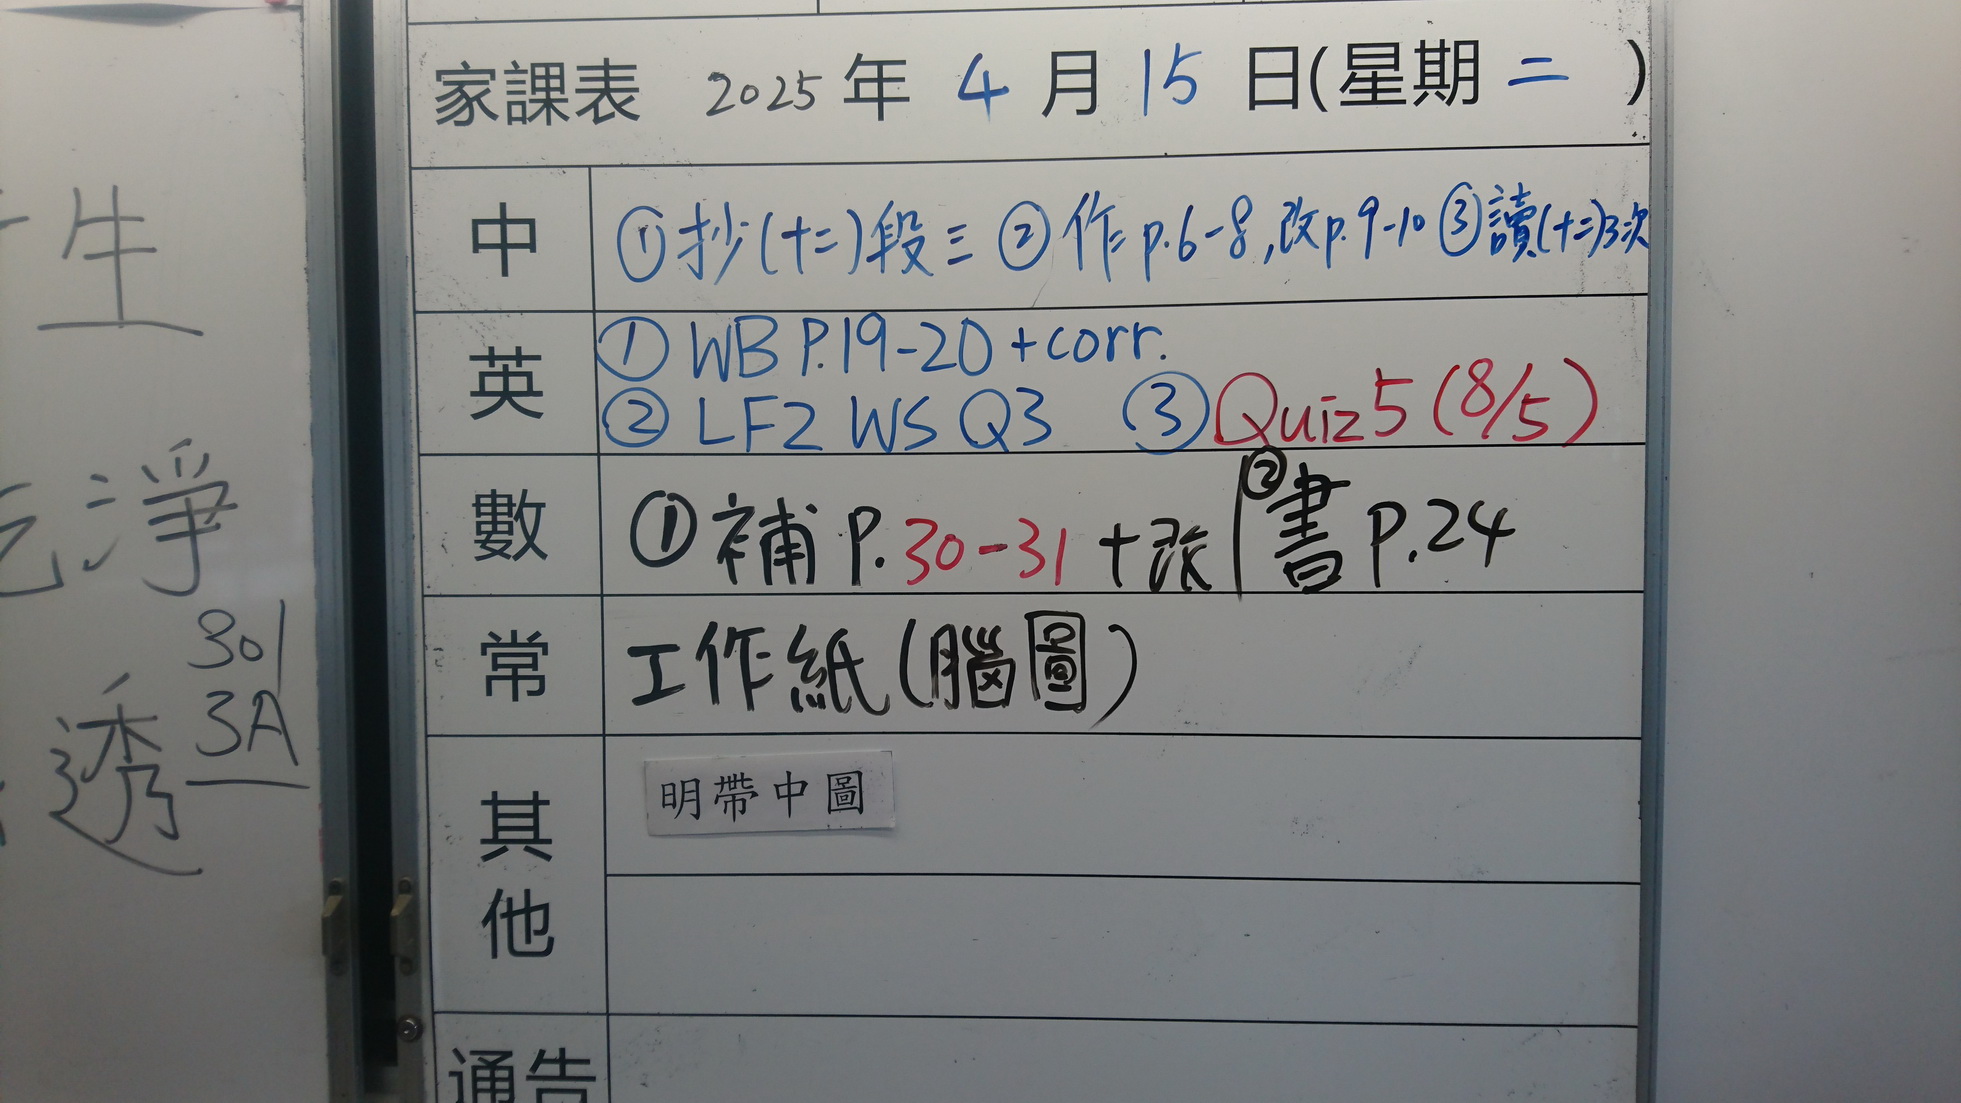 家課表 2025 年 4 月 15 日(星期二)
中 ①抄(十二)段三 ②作 p.6-8,改p.9-10 ③讀(十二)3次
英 ① WB P.19-20 +corr.
② LF2 WS Q3 ③ Quiz 5 (8/5)
數 ①補 P.30-31 +改 ②書 p.24
常 工作紙(腦圖)
其他 明帶中圖
通告
生
淨
301
3A
透